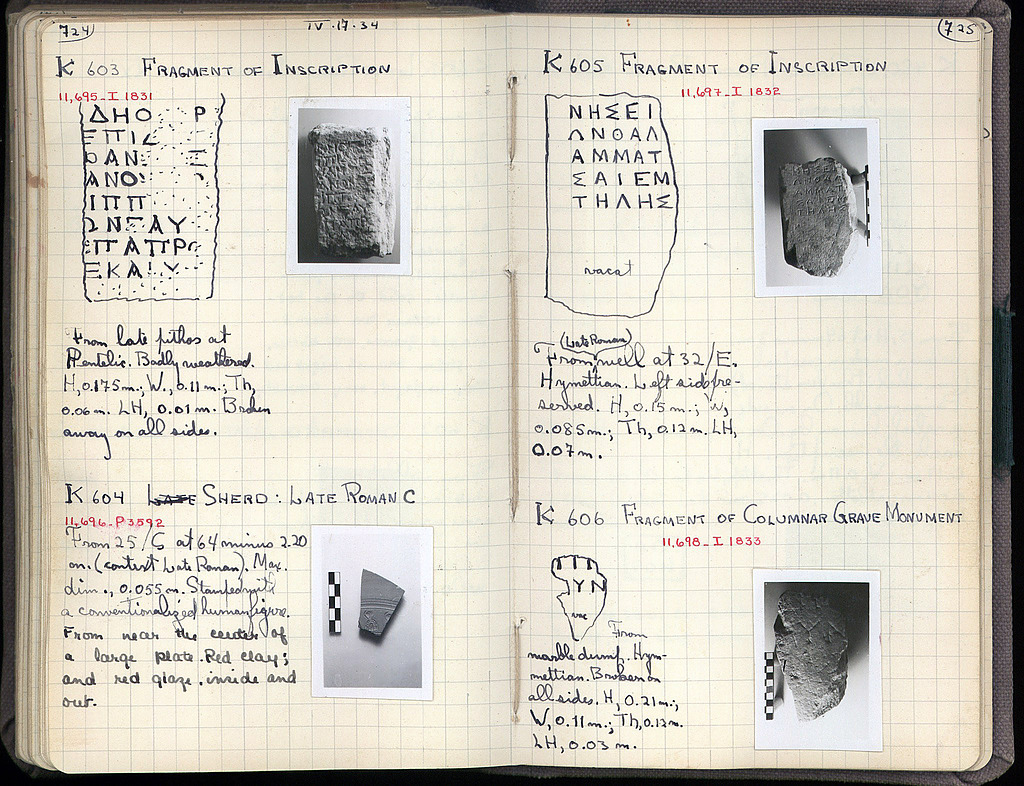 724
IV·17·34
K 603 FRAGMENT OF INSCRIPTION
11,695-I 1831
ΔΗΟ Ρ
ΕΠΙΣ
ΟΑΝ Ξ
ΑΝΟ
ΙΠΠ
ΩΝΞΑΥ
ΕΠΑΠΡΟ
ΕΚΑΙΥ
From late pithos at
Pentelic. Badly weathered.
H, 0.175m.; W., 0.11m.; Th,
0.06m. LH, 0.01m. Broken
away on all sides.
K 604 SHERD: LATE ROMAN C
11,696-P 3592
From 25/Ϛ at 64 minus 2.20
m. (context Late Roman). Max.
dim., 0.055m. Stamped with
a conventionalized human figure.
From near the center of
a large plate. Red clay;
and red glaze inside and
out.
725
K 605 FRAGMENT OF INSCRIPTION
11,697-I 1832
ΝΗΣΕΙ
ΛΝΘΑΛ
ΑΜΜΑΤ
ΣΑΙΕΜ
ΤΗΛΗΣ
vacat
(Late Roman)
From well at 32/Ε.
Hymettian. Left side pre-
served. H, 0.15m.; W,
0.085m.; Th, 0.12m. LH,
0.07m.
K 606 FRAGMENT OF COLUMNAR GRAVE MONUMENT
11,698-I 1833
ΥΝ
vac
From
marble dump. Hym-
mettian. Broken on
all sides. H, 0.21m.;
W, 0.11m.; Th, 0.12m.
LH, 0.03m.